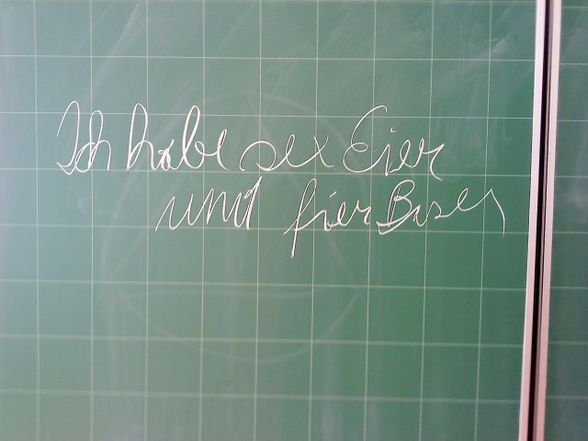 Ich habe sex Eier
und fier Buser